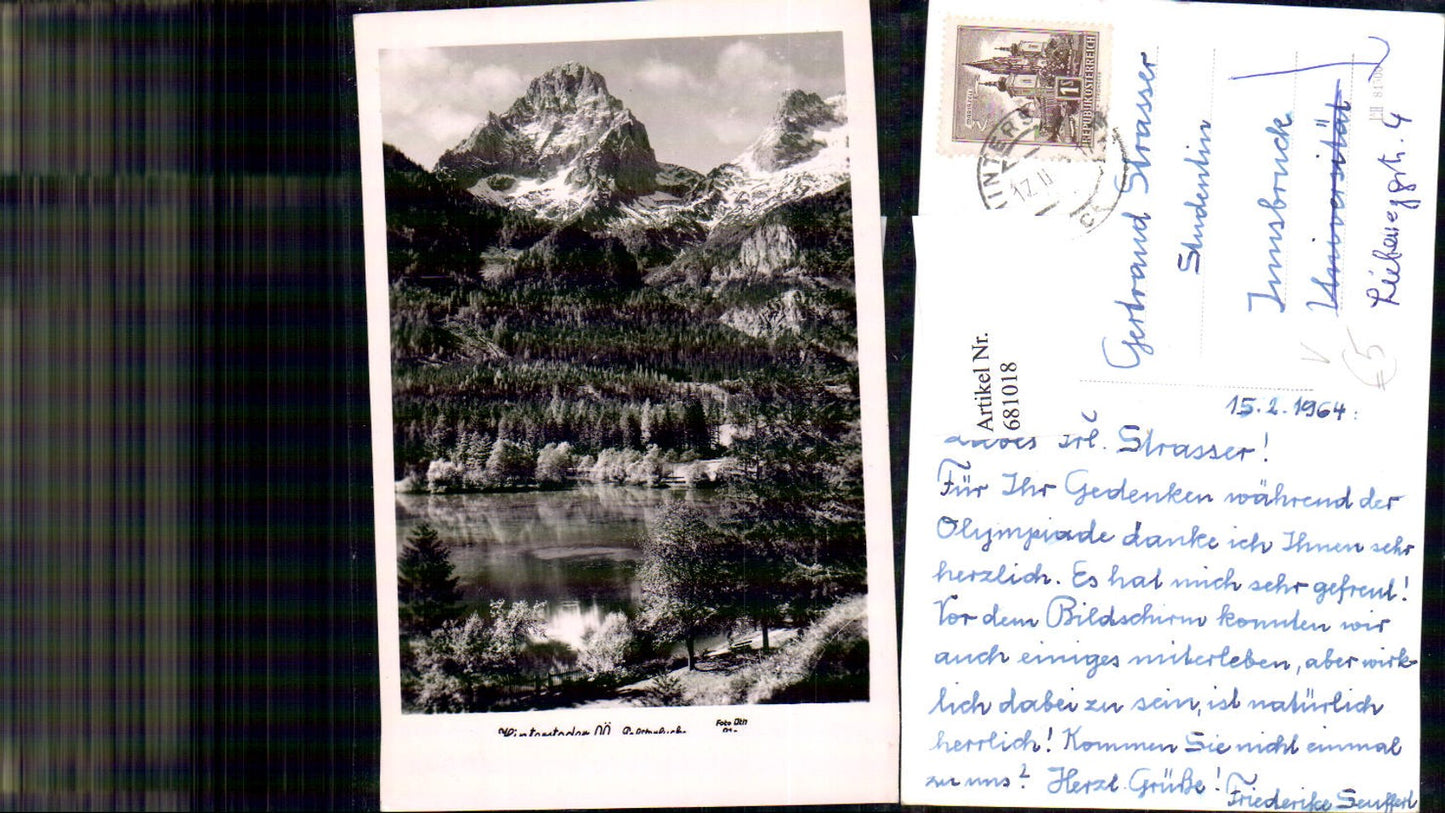 Hinterstoder OÖ
Foto Oth
MARIAZELL
1S
REPUBLIK ÖSTERREICH
HINTERS
17.II
Gertraud Strasser
Studentin
Innsbruck
Universität
Liebeneggstr. 4
Artikel Nr.
681018
€5
15.2.1964
Liebes Frl. Strasser!
Für Ihr Gedenken während der
Olympiade danke ich Ihnen sehr
herzlich. Es hat mich sehr gefreut!
Vor dem Bildschirm konnten wir
auch einiges miterleben, aber wirk-
lich dabei zu sein, ist natürlich
herrlich! Kommen Sie nicht einmal
zu uns? Herzl. Grüße!
Friederike Seufferl